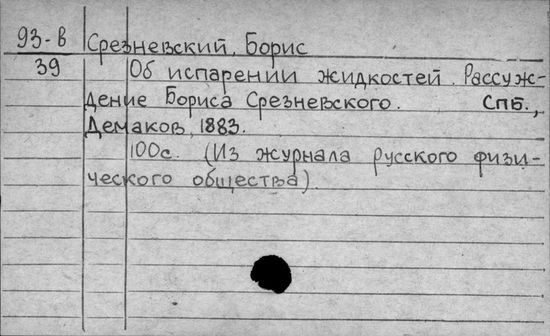 93-в Срезневский, Борис
39 Об испарении жидкостей. Рассуж-
дение Бориса Срезневского. СПб.,
Демаков, 1883.
100с. (Из журнала русского физи-
ческого общества)